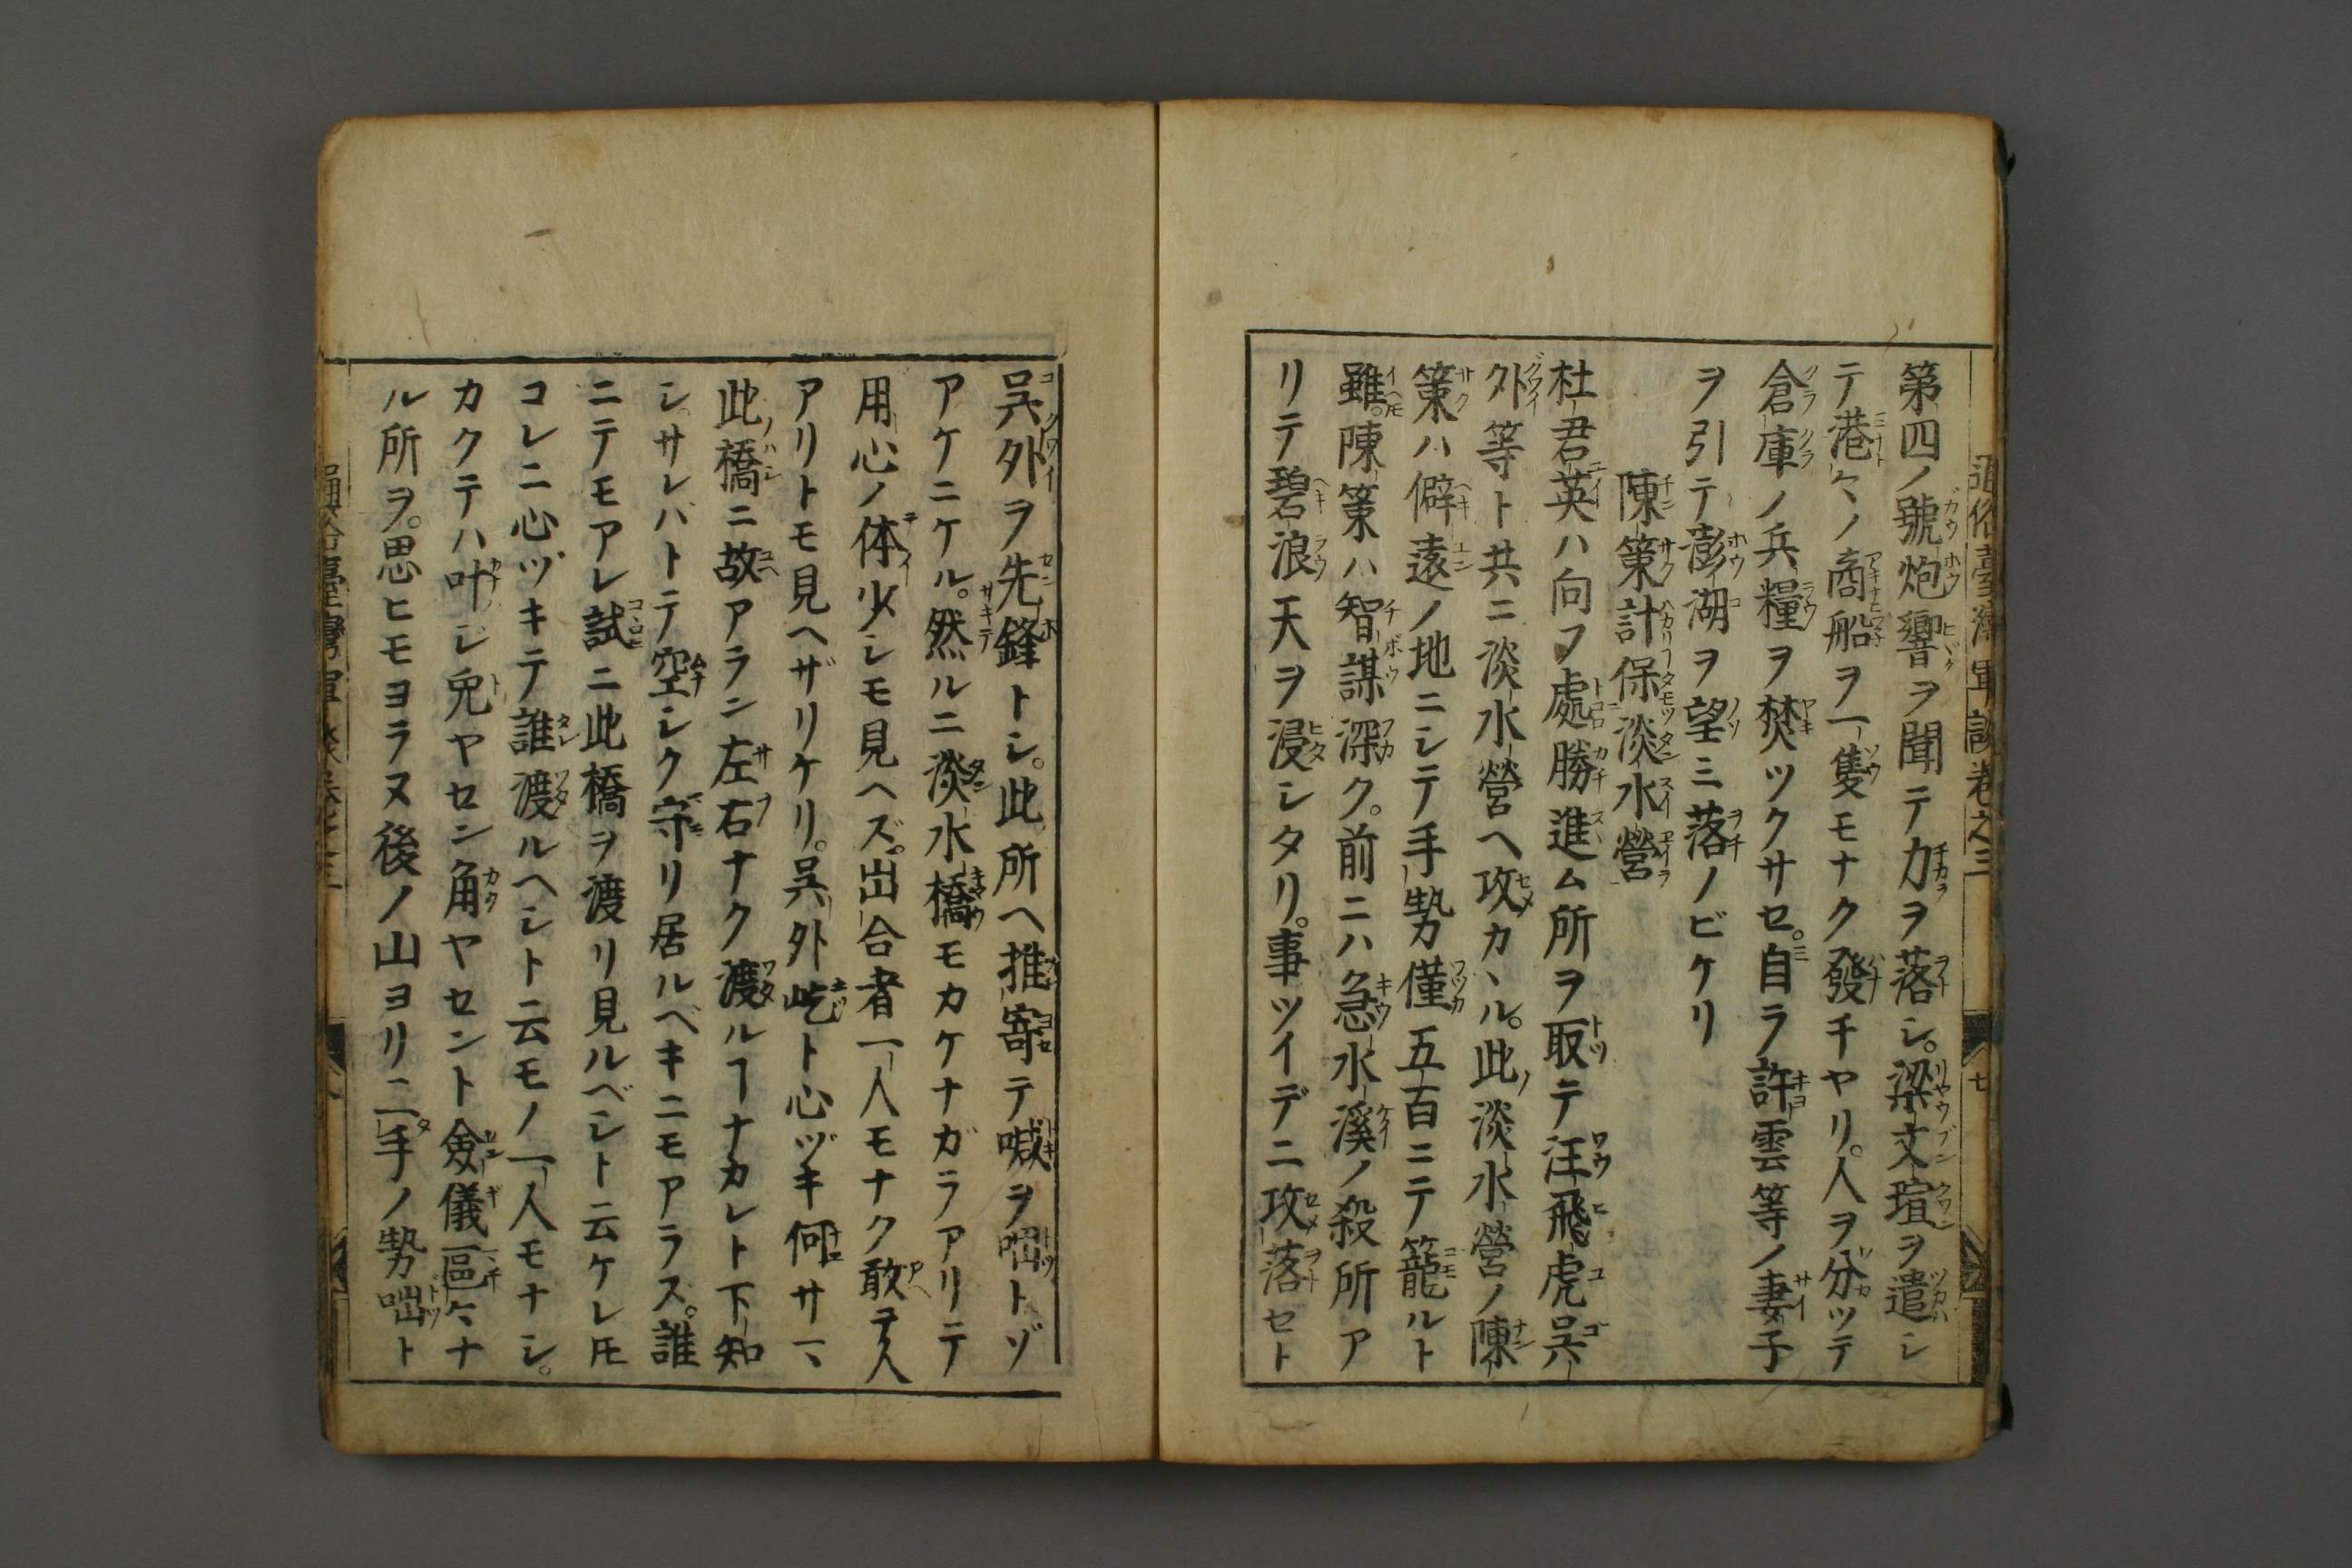 第四ノ號炮響ヲ聞テ力ヲ落シ。梁文瑄ヲ遣シ
テ港々ノ商船ヲ一隻モナク發チヤリ。人ヲ分ツテ
倉庫ノ兵糧ヲ焚ツクサセ。自ラ許雲等ノ妻子
ヲ引テ澎湖ヲ望ミ落ノビケリ
陳策計保淡水營
杜君英ハ向フ處勝進ム所ヲ取テ汪飛虎呉
外等ト共ニ淡水營ヘ攻カヽル。此淡水營ノ陳
策ハ僻遠ノ地ニシテ手勢僅五百ニテ籠ルト
雖。陳策ハ智謀深ク。前ニハ急水溪ノ殺所ア
リテ碧浪天ヲ浸シタリ。事ツイデニ攻落セト
呉外ヲ先鋒トシ。此所ヘ推寄テ喊ヲ咄トゾ
アケニケル。然ルニ淡水橋モカケナガラアリテ
用心ノ体少シモ見ヘズ。出合者一人モナク敢テ人
アリトモ見ヘザリケリ。呉外屹ト心ヅキ何サマ
此橋ニ故アラン左右ナク渡ルヿナカレト下知
シ。サレバトテ空シク守リ居ルベキニモアラズ。誰
ニテモアレ試ニ此橋ヲ渡リ見ルベシト云ケレ𪜈
コレニ心ヅキテ誰渡ルヘシト云モノ一人モナシ。
カクテハ叶ジ兎ヤセン角ヤセント僉儀區々ナ
ル所ヲ。思ヒモヨラヌ後ノ山ヨリ二手ノ勢咄ト